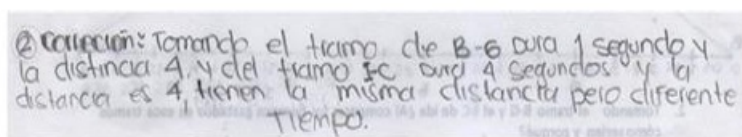 ② Corrección: Tomando el tramo de B-G dura 1 segundo y
la distincia 4. y del tramo I-C dura 4 segundos y la
distancia es 4, tienen la misma distancia pero diferente
Tiempo.